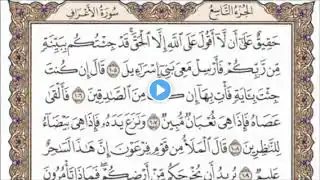 الجزء التاسع
سورة الأعراف
حَقِيقٌ عَلَىٰٓ أَن لَّآ أَقُولَ عَلَى ٱللَّهِ إِلَّا ٱلْحَقَّ قَدْ جِئْتُكُم بِبَيِّنَةٍ
مِّن رَّبِّكُمْ فَأَرْسِلْ مَعِىَ بَنِىٓ إِسْرَٰٓءِيلَ ١٠٥ قَالَ إِن كُنتَ
جِئْتَ بِـَٔايَةٍ فَأْتِ بِهَآ إِن كُنتَ مِنَ ٱلصَّٰدِقِينَ ١٠٦ فَأَلْقَىٰ
عَصَاهُ فَإِذَا هِىَ ثُعْبَانٌ مُّبِينٌ ١٠٧ وَنَزَعَ يَدَهُۥ فَإِذَا هِىَ بَيْضَآءُ
لِلنَّٰظِرِينَ ١٠٨ قَالَ ٱلْمَلَأُ مِن قَوْمِ فِرْعَوْنَ إِنَّ هَٰذَا لَسَٰحِرٌ
عَلِيمٌ ١٠٩ يُرِيدُ أَن يُخْرِجَكُم مِّنْ أَرْضِكُمْ فَمَاذَا تَأْمُرُونَ